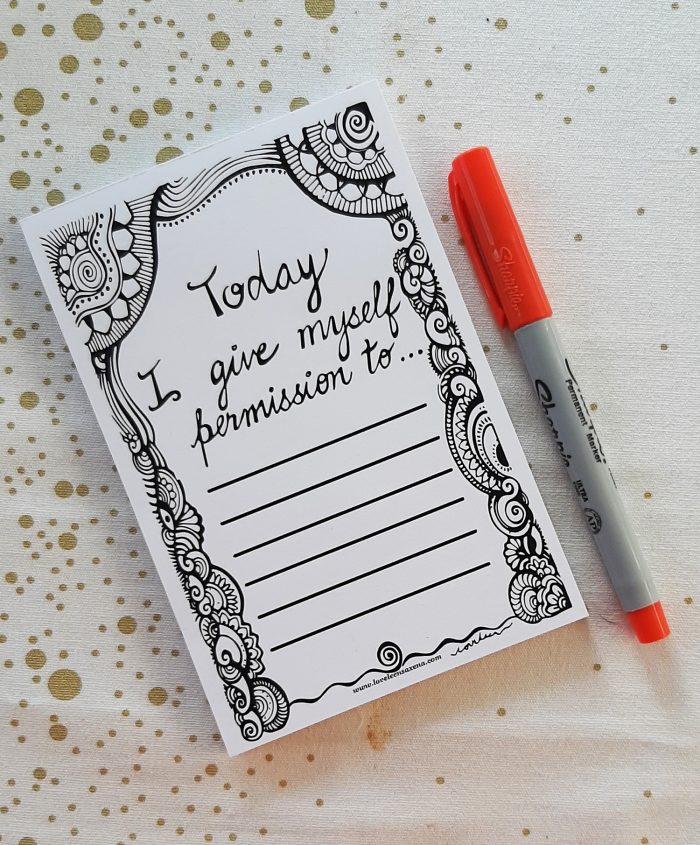 Today
I give myself
permission to...
www.loveleensaxena.com
Sharpie
Sharpie
Permanent Marker
ULTRA
AP